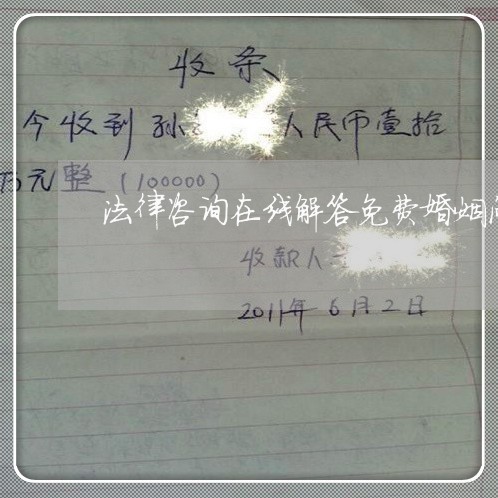 收条
今收到孙 人民币壹拾
万元整(100000)
法律咨询在线解答免费婚姻
收款人
2011年6月2日